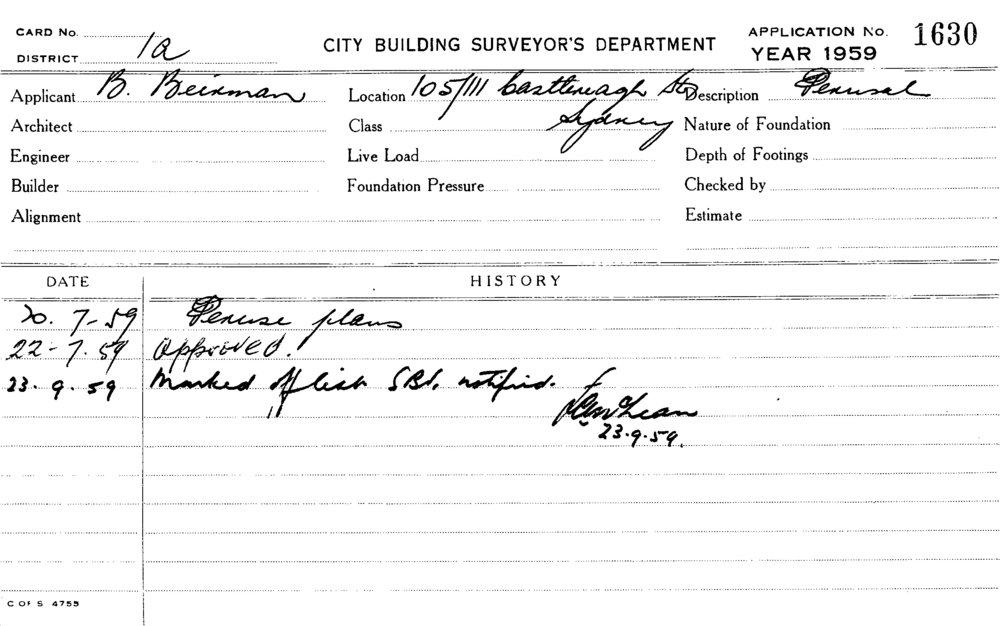 CARD No.
DISTRICT 1a
CITY BUILDING SURVEYOR'S DEPARTMENT
APPLICATION No. 1630
YEAR 1959
Applicant B. Beinman Location 105/111 Castlereagh St Description Perusal
Architect Class Sydney Nature of Foundation
Engineer Live Load Depth of Footings
Builder Foundation Pressure Checked by
Alignment Estimate
DATE HISTORY
20. 7-59 Peruse plans
22-7.59 Approved.
23.9.59 Marked off list SBI. notified.
McLean
23.9.59.
C OF S 4755